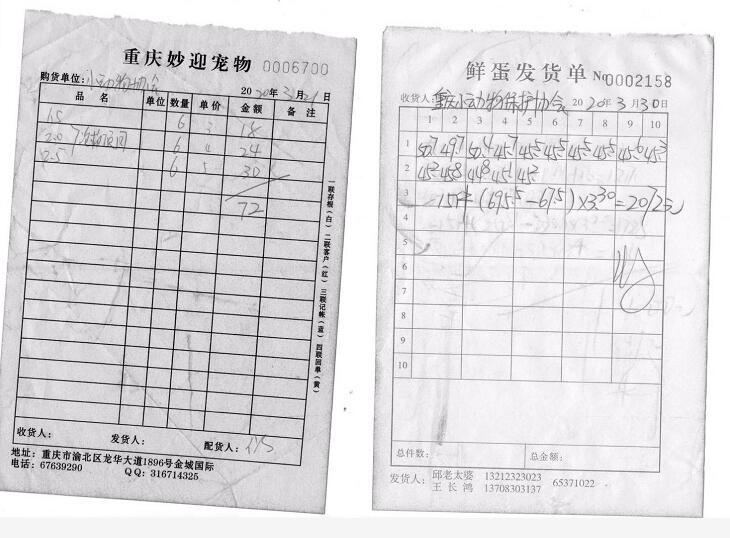 重庆妙迎宠物 0006700
购货单位：小动物协会 2020年3月21日
品名 单位 数量 单价 金额 备注
1.5 6 3 18
2.0 6 4 24
2.5 6 5 30
72
一联存根（白） 二联客户（红） 三联记帐（蓝） 四联回单（黄）
收货人： 发货人： 配货人：
地址：重庆市渝北区龙华大道1896号金城国际
电话：67639290 QQ：316714325
鲜蛋发货单 No 0002158
收货人：重庆小动物保护协会 2020年3月30日
1 2 3 4 5 6 7 8 9 10
1 50.7 49.7 50.4 45.7 45.5 45.5 45.5 45.5 45.6 45.3
2 45.2 45.8 44.8 45.1 45.2
3 15件 (695.5-67.5)×3.30=2072元
4
5
6
7
8
9
10
总件数： 总金额：
发货人： 邱老太婆 13212323023 65371022
王长鸿 13708303137